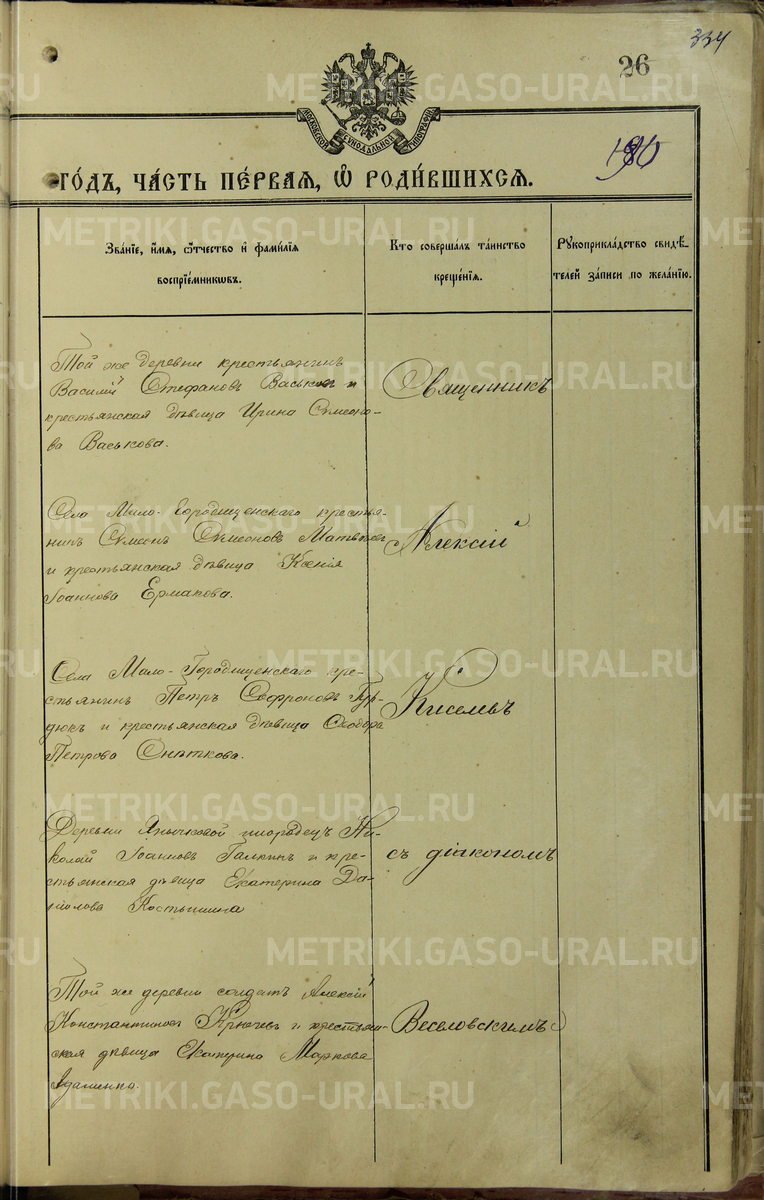 334
26
МОСКОВСКОЙ СѴНОДАЛЬНОЙ ТИПОГРАФІИ
ГО́ДЪ, ЧА́СТЬ ПЕ́РВАЯ, Ѽ РОДИ́ВШИХСЯ.
Зва́нїе, и́мя, ѻ҆́тчество и҆ фами́лїя
воспрїе́мниковъ.
Кто соверша́лъ та́инство
креще́нїя.
Рꙋкоприкла́дство свидѣ́-
телей за́писи по жела́нїю.
Той же деревни крестьянинъ
Василій Стефановъ Васьковъ и
крестьянская дѣвица Ирина Симеоно-
ва Васькова.
Священникъ
Села Мало-Городищенскаго крестья-
нинъ Симеонъ Симеоновъ Матвѣевъ
и крестьянская дѣвица Ксенія
Іоаннова Ермакова.
Алексій
Села Мало-Городищенскаго кре-
стьянинъ Петръ Софроновъ Гур-
дюкъ и крестьянская дѣвица Ѳеодора
Петрова
Киселевъ
Деревни инородецъ Ни-
колай Іоанновъ Галкинъ и кре-
стьянская дѣвица Екатерина Да-
ніилова Костышина
съ діакономъ
Той же деревни солдатъ Алексій
Константиновъ и крестьян-
ская дѣвица Екатерина Маркова
Адаменко.
Веселовскимъ
METRIKI.GASO-URAL.RU